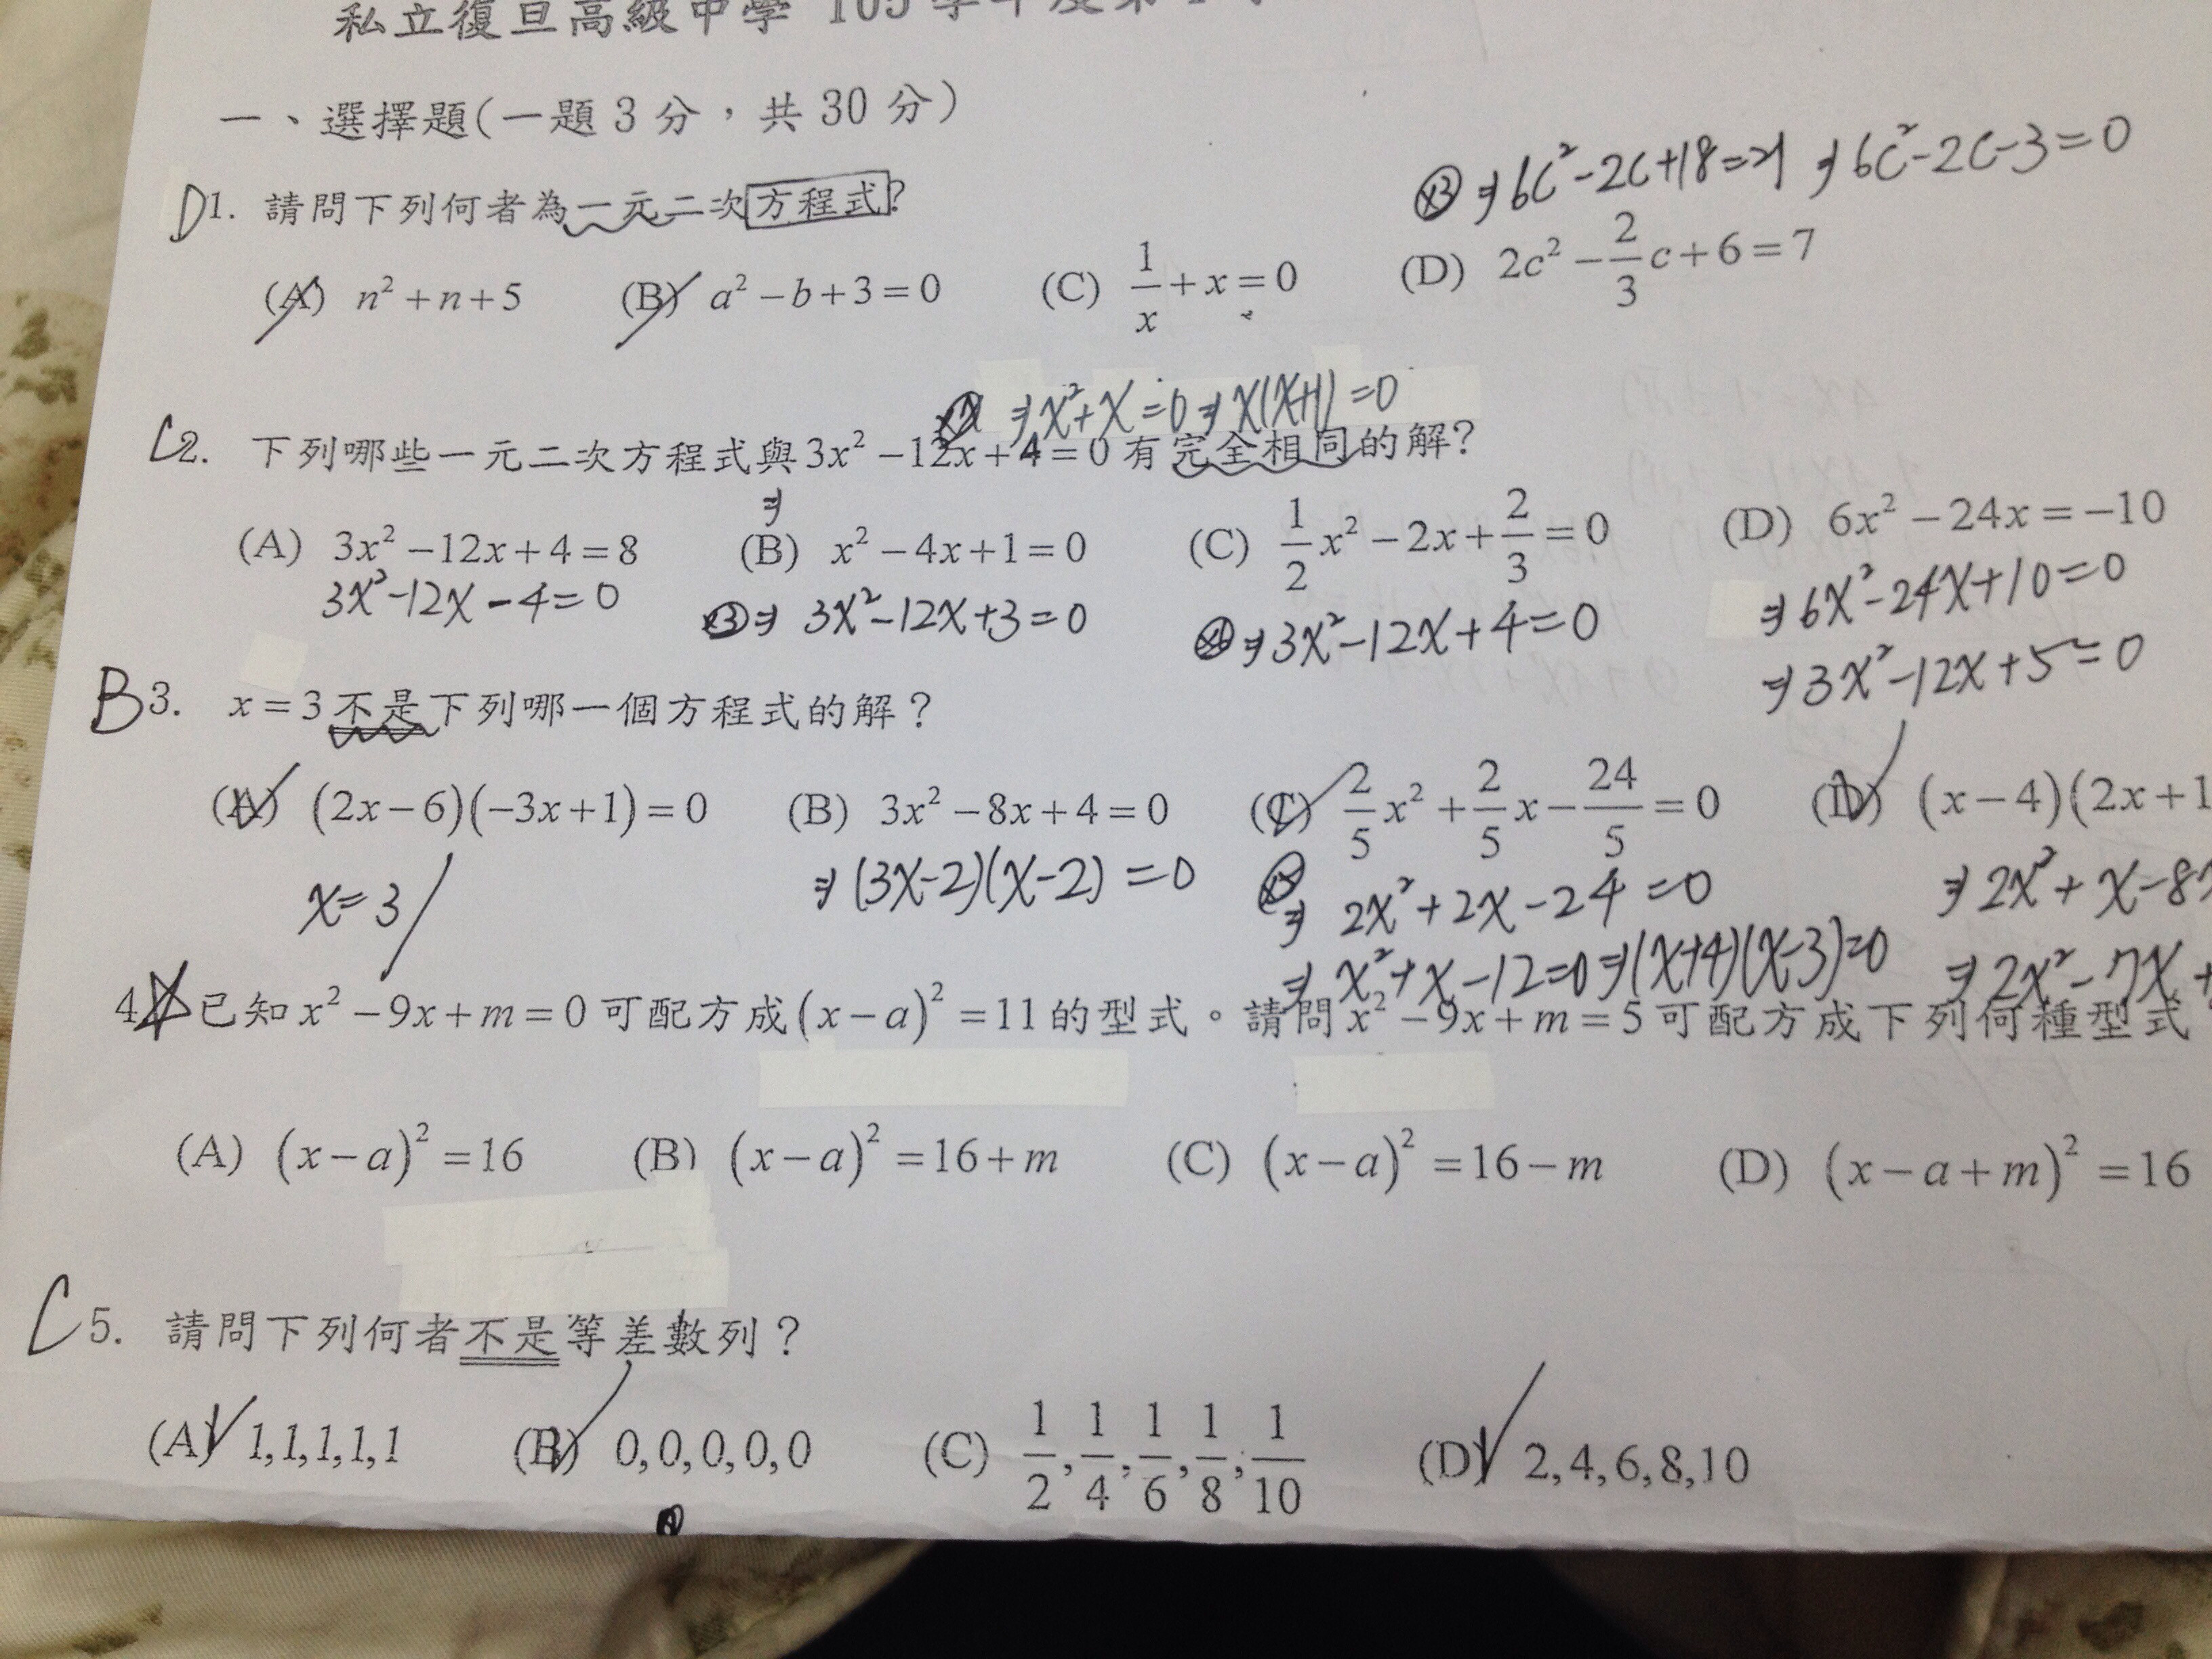 私立復旦高級中學 105 學年度第
一、選擇題(一題 3 分,共 30 分)
⊗3 ⇒ 6c² - 2c + 18 = 21 ⇒ 6c² - 2c - 3 = 0
D 1. 請問下列何者為一元二次方程式?
(A) n² + n + 5 (B) a² - b + 3 = 0 (C) 1/x + x = 0 (D) 2c² - 2/3 c + 6 = 7
⇒ x² + x = 0 ⇒ x(x+1) = 0
C 2. 下列哪些一元二次方程式與 3x² - 12x + 4 = 0 有完全相同的解?
(A) 3x² - 12x + 4 = 8 (B) x² - 4x + 1 = 0 (C) 1/2 x² - 2x + 2/3 = 0 (D) 6x² - 24x = -10
3x² - 12x - 4 = 0 ×3 ⇒ 3x² - 12x + 3 = 0 ⇒ 3x² - 12x + 4 = 0 ⇒ 6x² - 24x + 10 = 0
⇒ 3x² - 12x + 5 = 0
B 3. x = 3 不是下列哪一個方程式的解?
(A) (2x-6)(-3x+1) = 0 (B) 3x² - 8x + 4 = 0 (C) 2/5 x² + 2/5 x - 24/5 = 0 (D) (x-4)(2x+1
x = 3 ⇒ (3x-2)(x-2) = 0 ⇒ 2x² + 2x - 24 = 0 ⇒ 2x² + x - 8x
⇒ x² + x - 12 = 0 ⇒ (x+4)(x-3) = 0 ⇒ 2x² - 7x +
4. 已知 x² - 9x + m = 0 可配方成 (x-a)² = 11 的型式。請問 x² - 9x + m = 5 可配方成下列何種型式
(A) (x-a)² = 16 (B) (x-a)² = 16 + m (C) (x-a)² = 16 - m (D) (x-a+m)² = 16
C 5. 請問下列何者不是等差數列?
(A) 1,1,1,1,1 (B) 0,0,0,0,0 (C) 1/2, 1/4, 1/6, 1/8, 1/10 (D) 2,4,6,8,10